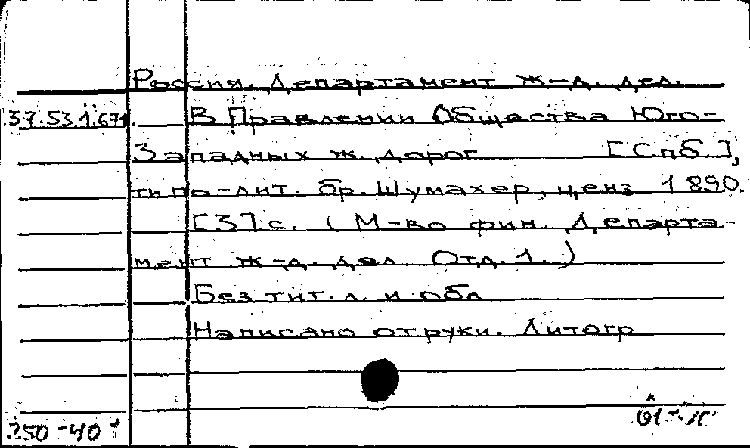 Россия. Департамент ж-д. дел.
37.53.1.671. В Правлении Общества Юго-
Западных ж. дорог [Спб],
типо-лит. бр. Шумахер, ценз 1890.
[3] с. (М-во фин. Департа-
мент ж-д. дел Отд. 1.)
Без тит. л. и обл
Написано от руки. Литогр
250-40